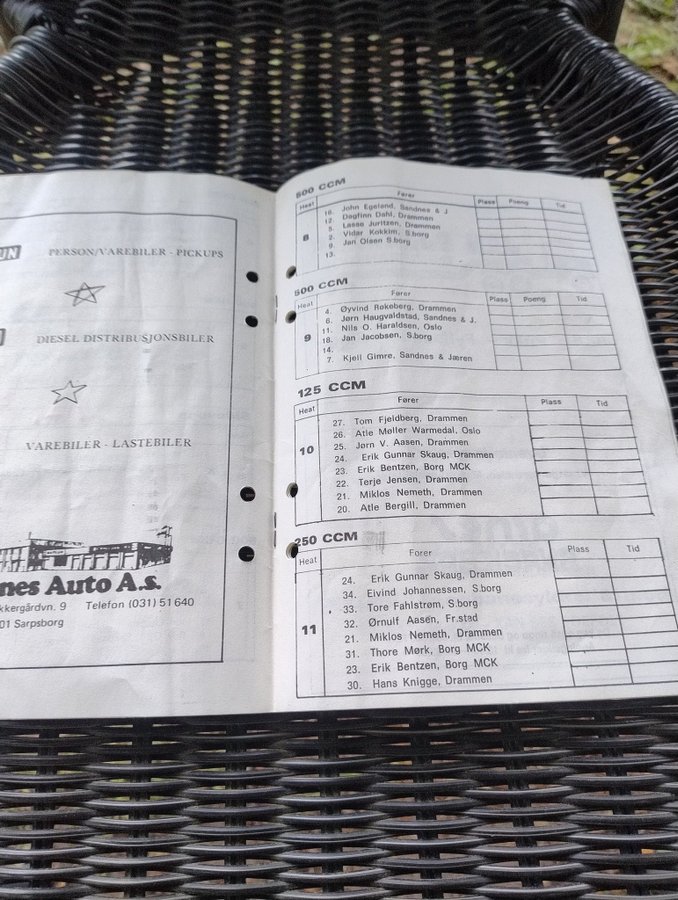 UN
PERSON/VAREBILER - PICKUPS
DIESEL DISTRIBUSJONSBILER
VAREBILER - LASTEBILER
nes Auto A.s.
kkergårdvn. 9 Telefon (031) 51 640
01 Sarpsborg
500 CCM
Heat Fører Plass Poeng Tid
8
16. John Egeland, Sandnes & J
12. Dagfinn Dahl, Drammen
5. Lasse Juritzen, Drammen
2. Vidar Kokkim, S.borg
9. Jan Olsen S.borg
13.
500 CCM
Heat Fører Plass Poeng Tid
9
4. Øyvind Rokeberg, Drammen
6. Jørn Haugvaldstad, Sandnes & J.
11. Nils O. Haraldsen, Oslo
18. Jan Jacobsen, S.borg
14.
7. Kjell Gimre, Sandnes & Jæren
125 CCM
Heat Fører Plass Tid
10
27. Tom Fjeldberg, Drammen
26. Atle Møller Warmedal, Oslo
25. Jørn V. Aasen, Drammen
24. Erik Gunnar Skaug, Drammen
23. Erik Bentzen, Borg MCK
22. Terje Jensen, Drammen
21. Miklos Nemeth, Drammen
20. Atle Bergill, Drammen
250 CCM
Heat Fører Plass Tid
11
24. Erik Gunnar Skaug, Drammen
34. Eivind Johannessen, S.borg
33. Tore Fahlstrøm, S.borg
32. Ørnulf Aasen, Fr.stad
21. Miklos Nemeth, Drammen
31. Thore Mørk, Borg MCK
23. Erik Bentzen, Borg MCK
30. Hans Knigge, Drammen